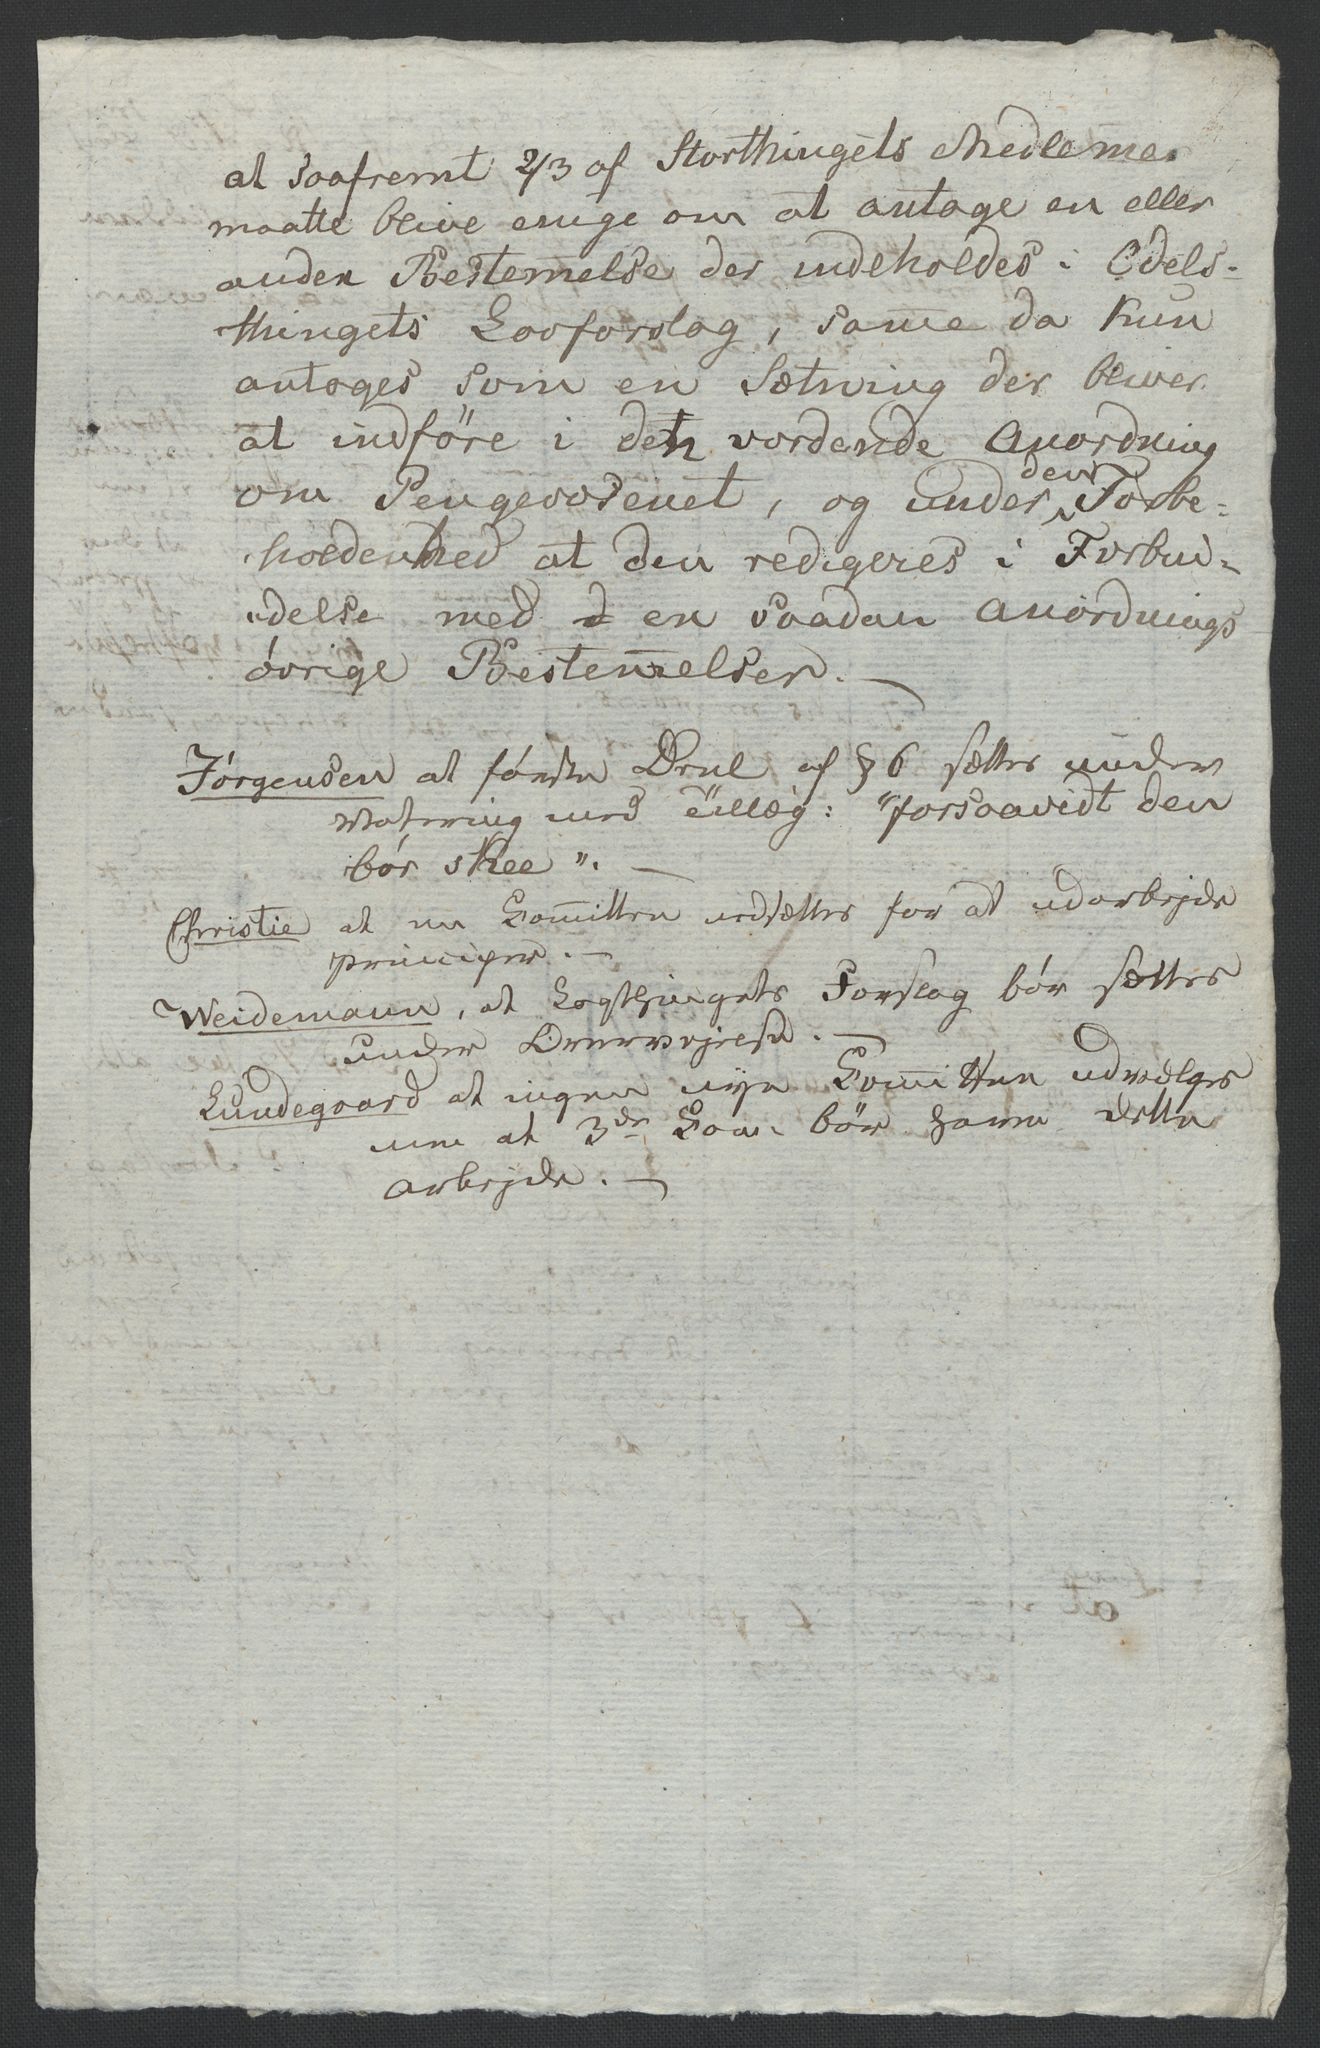 at saafremt 2/3 af Storthingets Medlemer
maatte blive enige om at antage en eller
anden Bestemelse der indeholdes i Odels-
thingets Lovforslag, same da kun
antages som en Sætning der bliver
at indföre i den vordende Anordning
om Pengevæsenet, og under den Forbe-
holdenhed at den redigeres i Forbin-
delse med en saadan Anordnings
övrige Bestemelser. —
Jörgensen at förste Deel af § 6 sættes under
Votering med Tillæg: "forsaavidt den
bör skee". —
Christie at en Comittee nedsættes for at udarbejde
principer. —
Weidemann, at Lagthingets Forslag bör sættes
under Overvejelse. —
Lundegaard at ingen nye Comitteen udvælges
men at 3de Com: bör have dette
arbejde. —